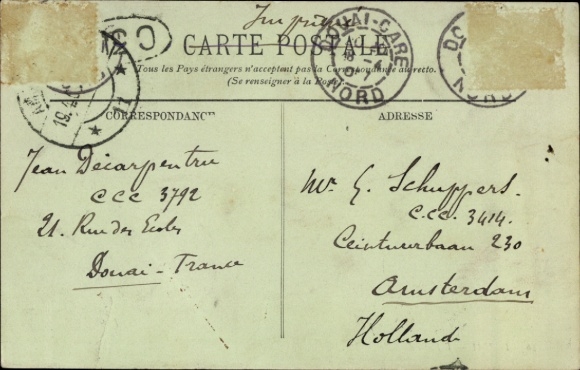 CARTE POSTALE
Tous les Pays étrangers n'acceptent pas la Correspondance au recto.
(Se renseigner à la Poste)
DOUAI-GARE
NORD
NORD
11
CORRESPONDANCE
ADRESSE
Jean Decarpentrie
CCC 3792
21. Rue des Ecoles
Douai - France
Mr. G. Schuppers.
C.C.C. 3414.
Ceintuurbaan 230
Amsterdam
Holland